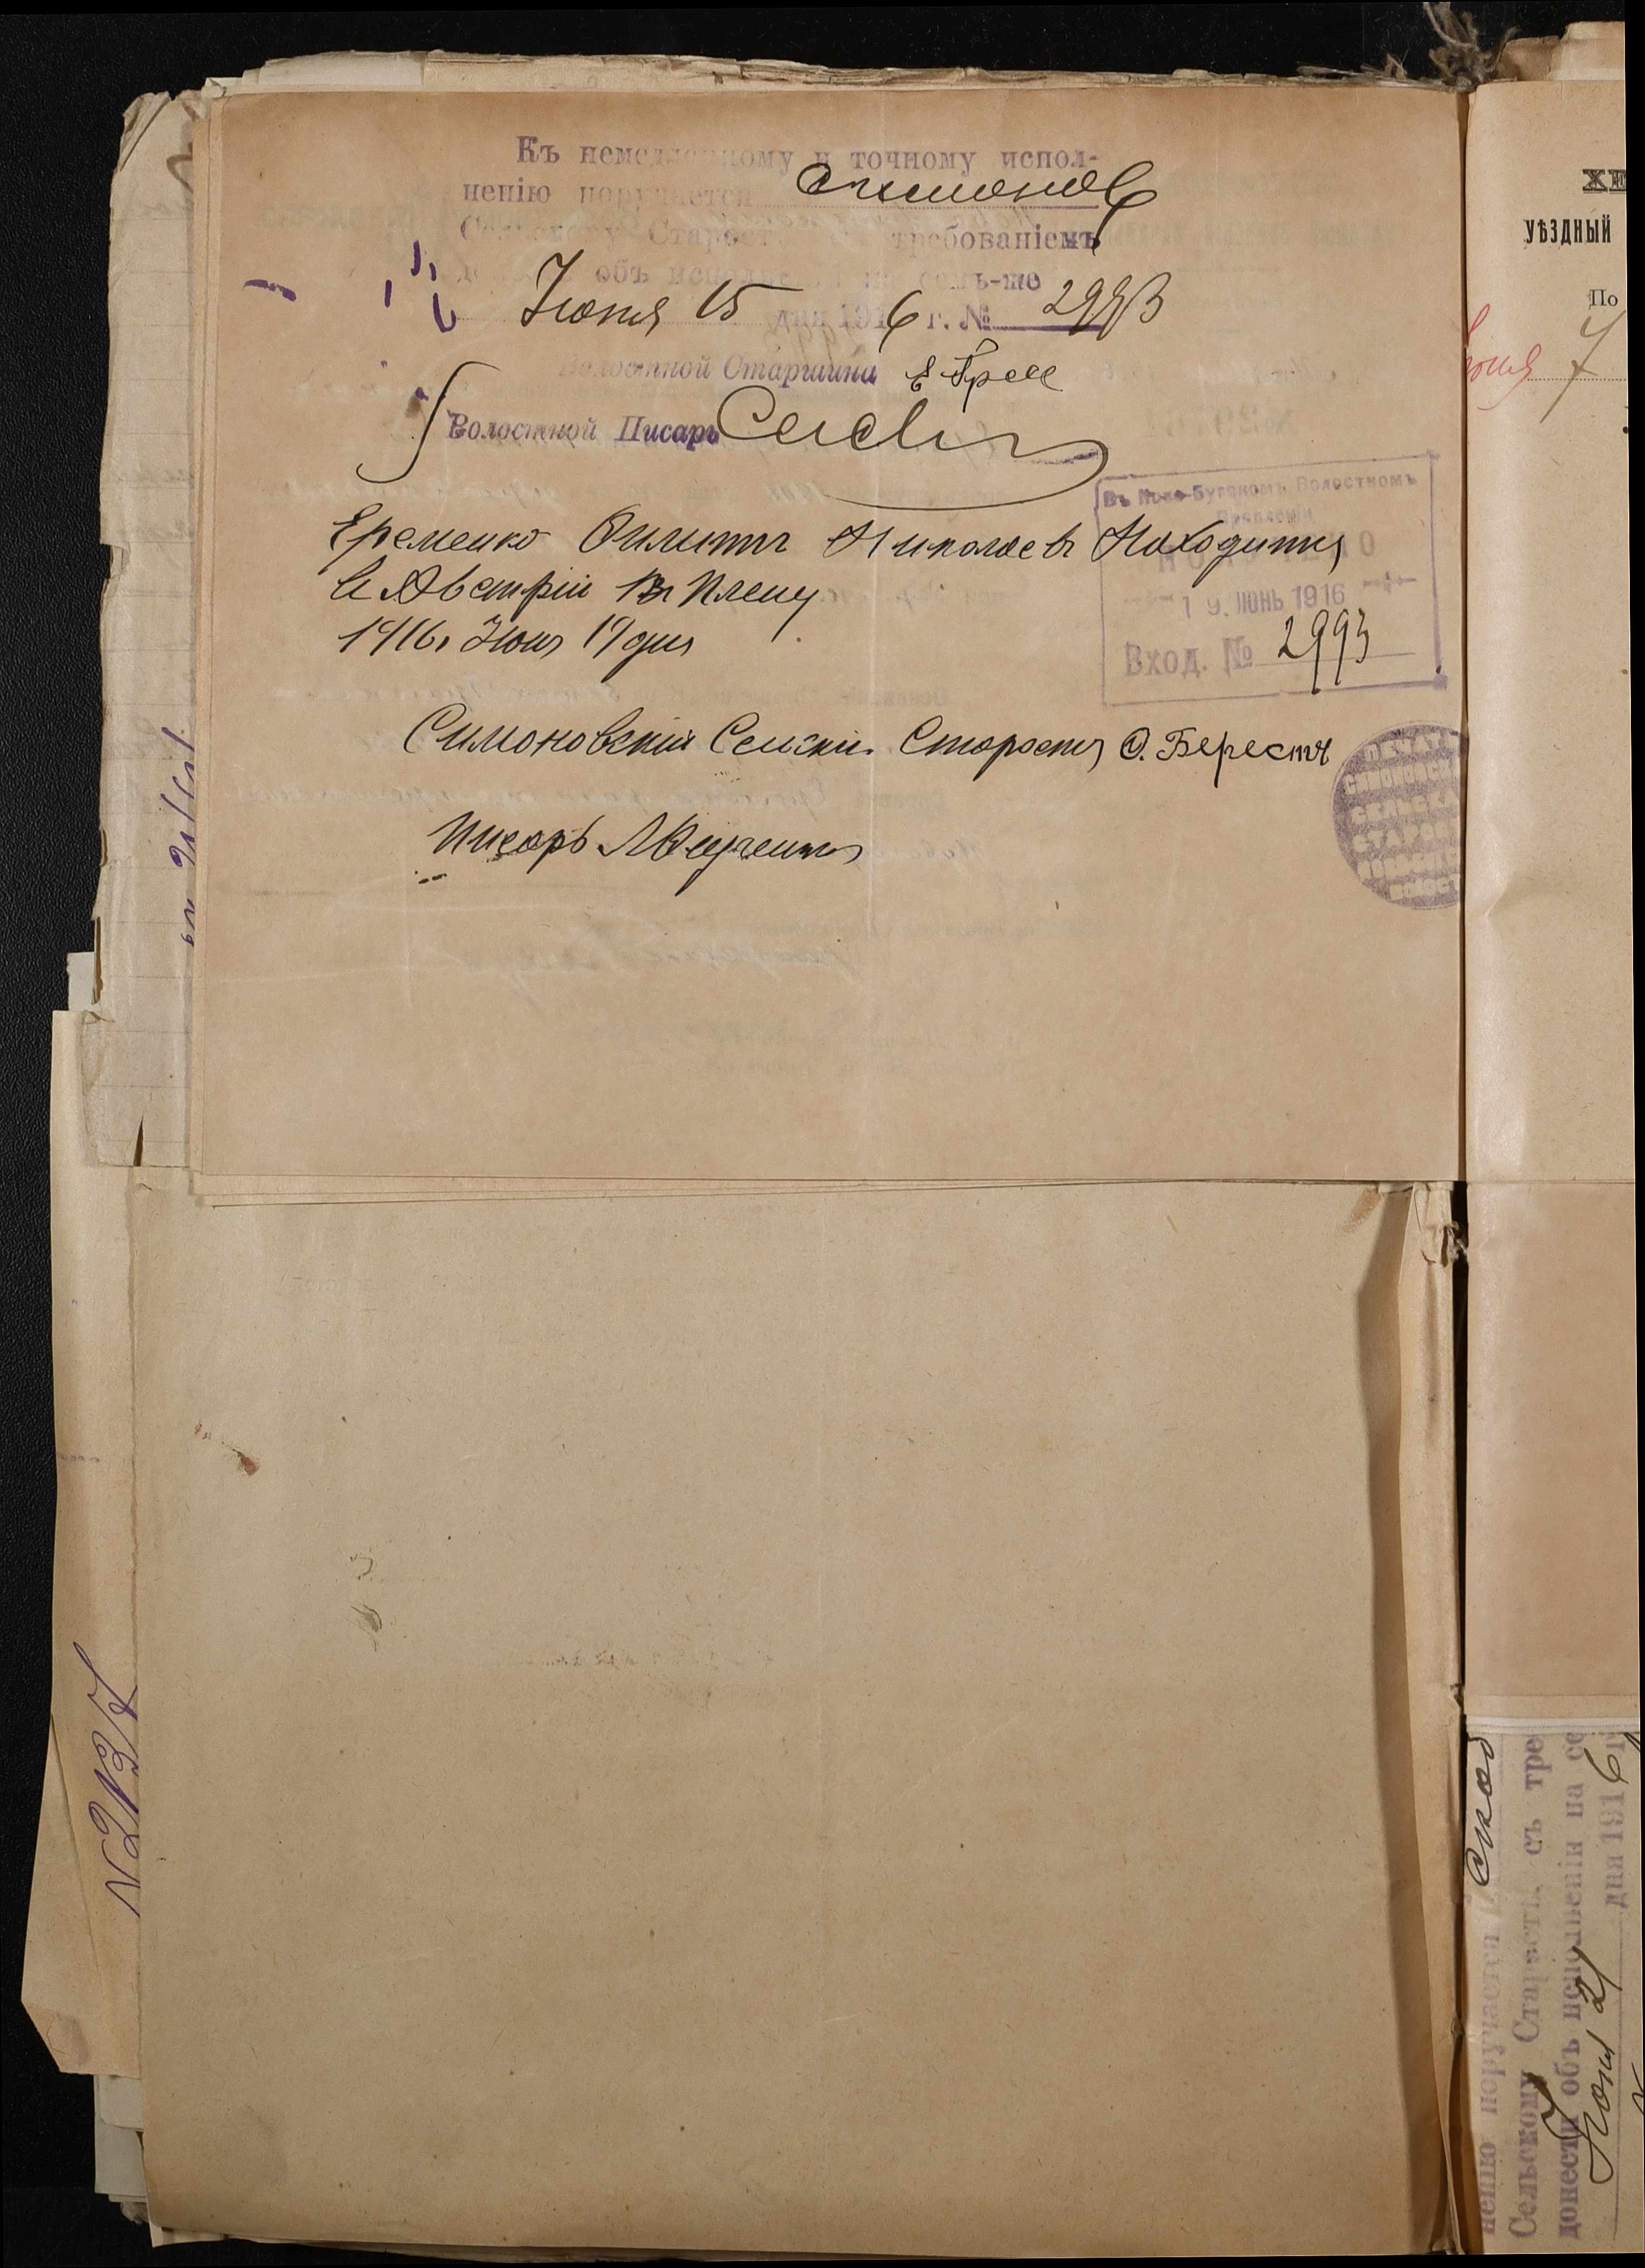 Къ немедленному и точному испол-
ненію поручается Симонов
Сельскому Старост требованіемъ
объ исполне семъ-же
Іюня 15 дня 1916 г. № 2993
Волостной Старшина Е Грек
Волостной Писарь
Въ Ново-Бугскомъ Волостномъ
Правленіи
ПОЛУЧЕНО
19. ІЮНЬ 1916
Вход. № 2993
Еременко Филиппъ Николаевъ Находится
в Австріи въ плену
1916 г Июня 19 дня
Симоновскій Сельскій Староста Ѳ. Берестъ
Писарь
ПЕЧАТЬ
№ 213
ХЕ
УѢЗДНЫЙ
По
Іюня 7
ненію поручается Скоб
Сельскому Старостѣ съ тре
донести объ исполненіи на се
Іюня 21 дня 1916 г